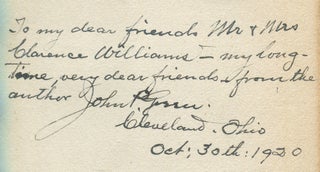 To my dear friends Mr & Mrs
Clarence Williams — my long-
time, very dear friends from the
author John P. Green.
Cleveland. Ohio
Oct; 30th: 1920